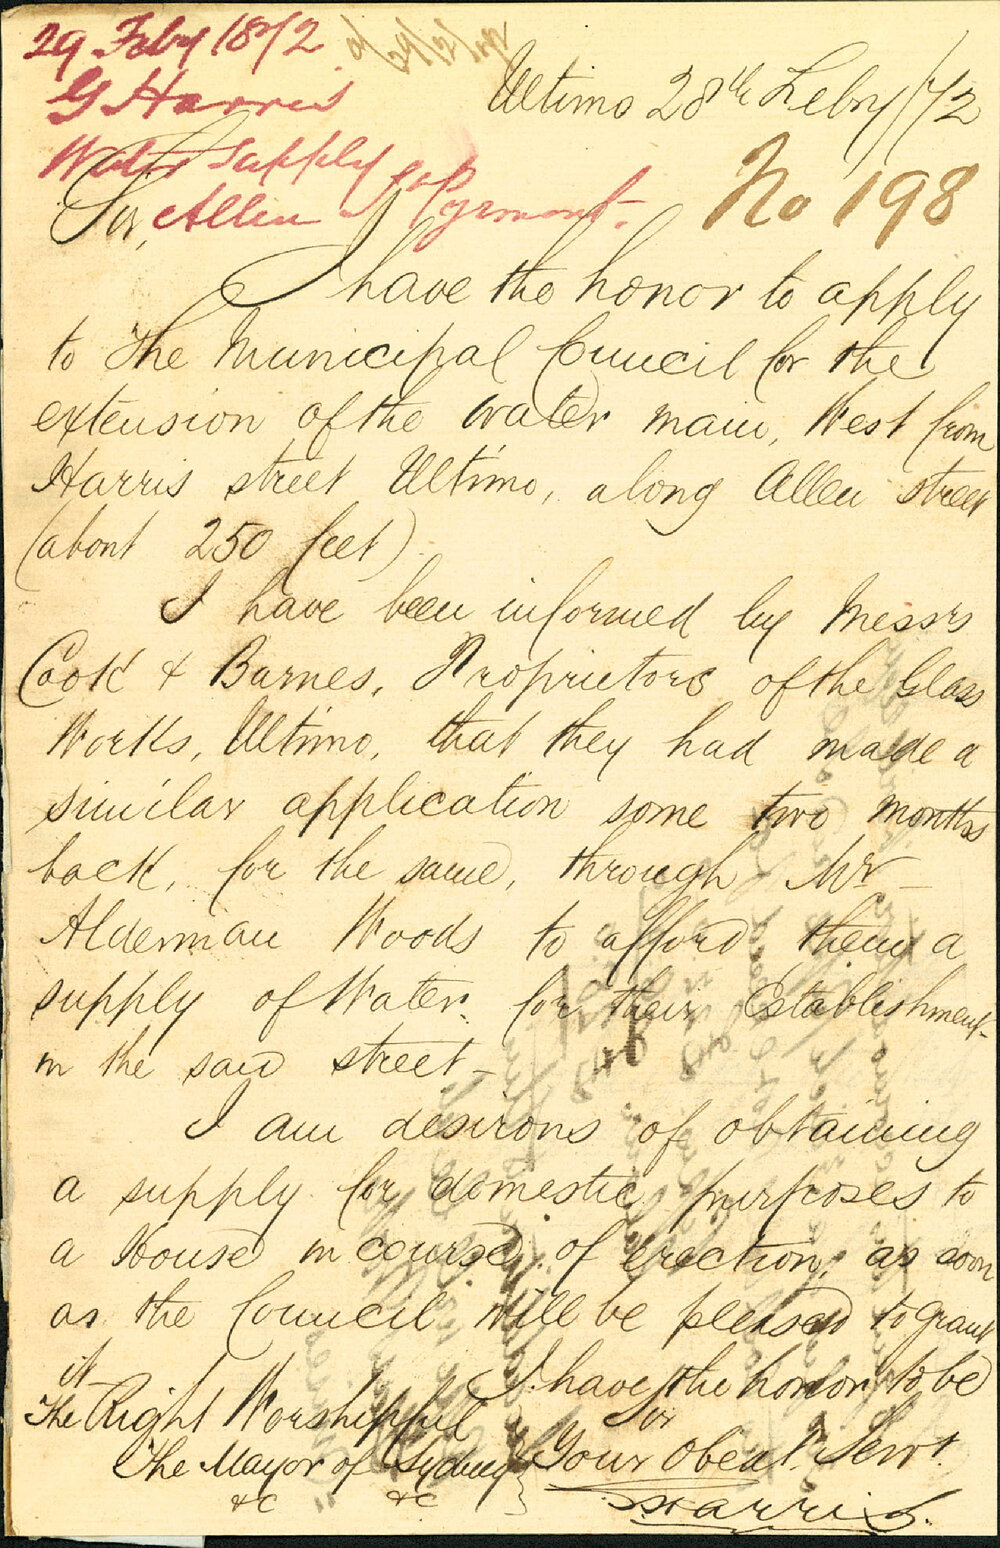 29 Feby 1872
G Harris
Water supply
Allen St Pyrmont.
No 198
Ultimo 28th Febry /72
Sir,
I have the honor to apply
to The Municipal Council for the
extension of the Water main, West from
Harris street Ultimo, along Allen street
(about 250 feet)
I have been informed by Messrs
Cook & Barnes, Proprietors of the Glass
Works, Ultimo, that they had made a
similar application some two months
back, for the same, through Mr
Alderman Woods to afford them a
supply of Water for their Establishment
in the said street -
I am desirous of obtaining
a supply for domestic purposes to
a House in course of erection, as soon
as the Council will be pleased to grant
it
I have the honor to be
Sir
Your Obedt. Servt.
Harris.
The Right Worshipful
The Mayor of Sydney
&c &c